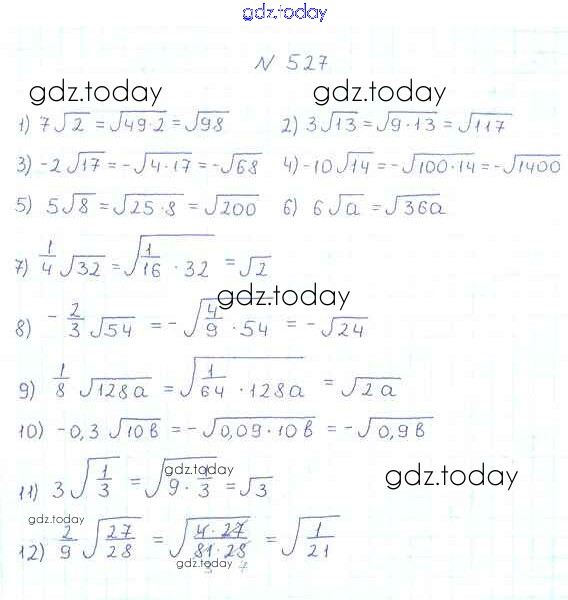 gdz.today
N 527
gdz.today gdz.today
1) 7√2 = √49·2 = √98 2) 3√13 = √9·13 = √117
3) -2√17 = -√4·17 = -√68 4) -10√14 = -√100·14 = -√1400
5) 5√8 = √25·8 = √200 6) 6√a = √36a
7) 1/4 √32 = √1/16 · 32 = √2
gdz.today
8) -2/3 √54 = -√4/9 · 54 = -√24
9) 1/8 √128a = √1/64 · 128a = √2a
10) -0,3 √10b = -√0,09·10b = -√0,9b
gdz.today gdz.today
11) 3√1/3 = √9·1/3 = √3
gdz.today
12) 2/9 √27/28 = √4·27/81·28 = √1/21
gdz.today
3 7